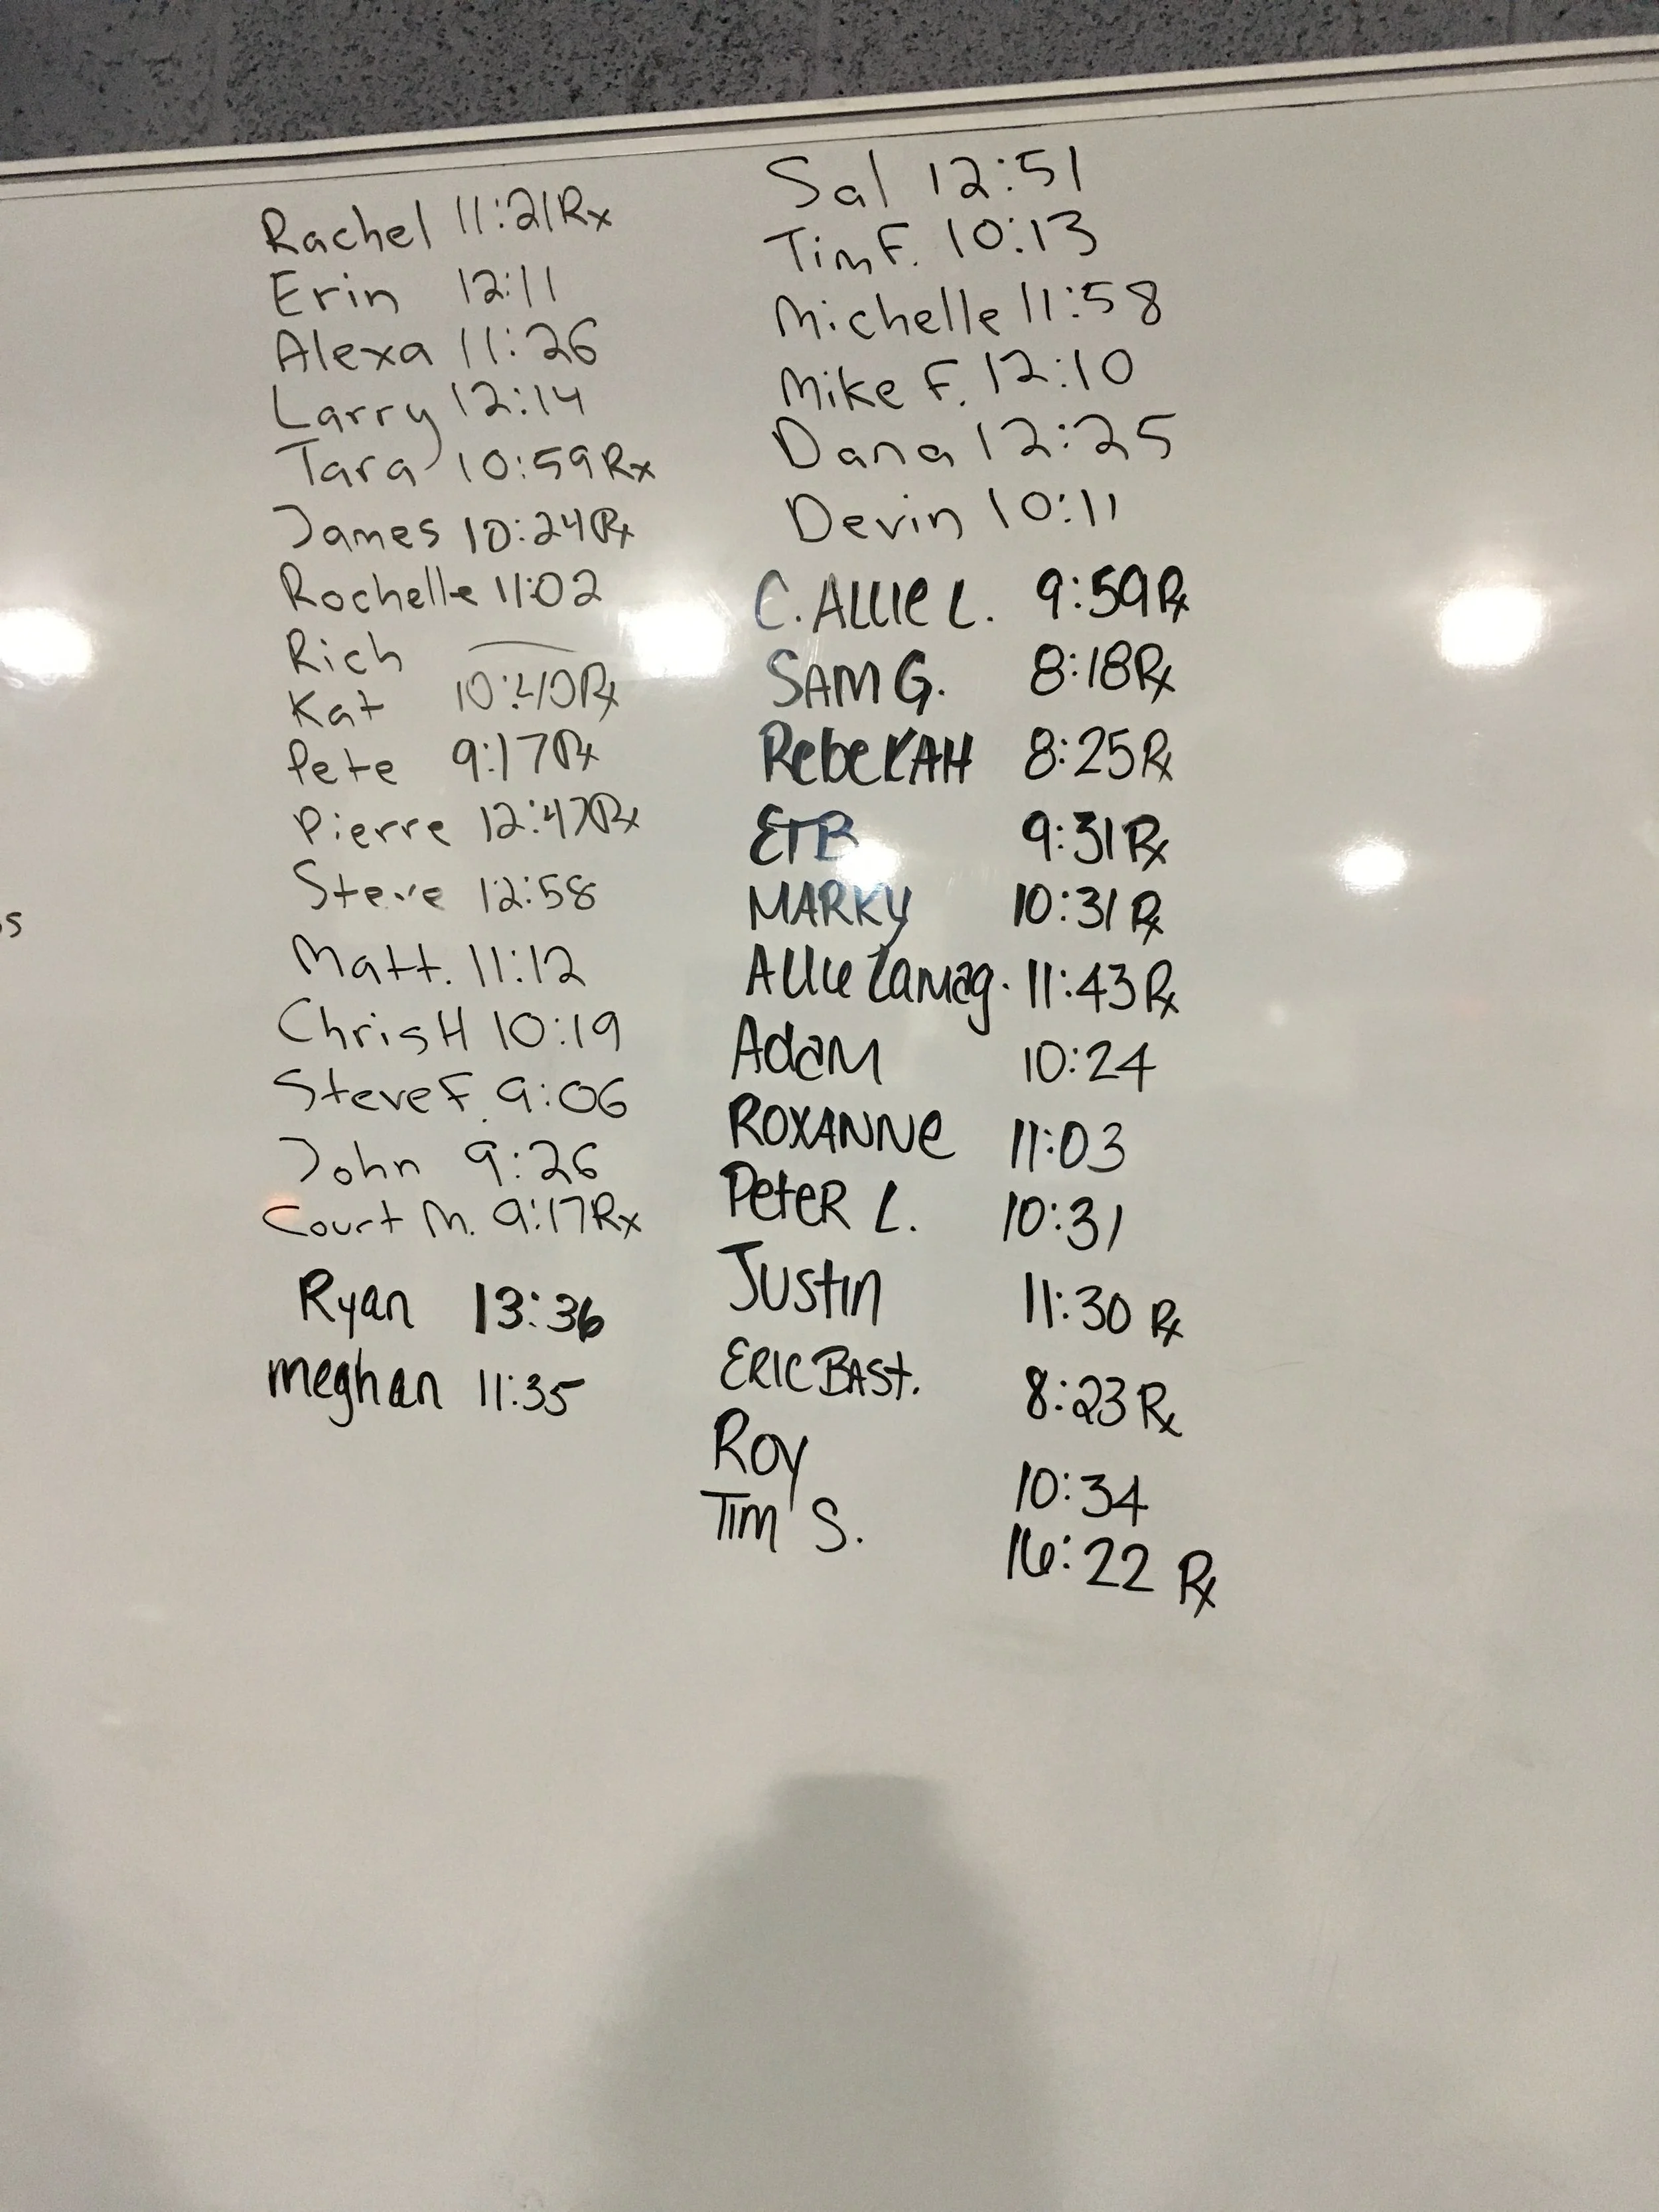 Rachel 11:21 Rx
Erin 12:11
Alexa 11:26
Larry 12:14
Tara 10:59 Rx
James 10:24 Rx
Rochelle 11:02
Rich —
Kat 10:40 Rx
Pete 9:17 Rx
Pierre 12:47 Rx
Steve 12:58
Matt. 11:12
Chris H 10:19
Steve F. 9:06
John 9:26
Court M. 9:17 Rx
Ryan 13:36
meghan 11:35
Sal 12:51
Tim F. 10:13
Michelle 11:58
Mike F. 12:10
Dana 12:25
Devin 10:11
C. ALLIE L. 9:59 Rx
SAM G. 8:18 Rx
RebeKAH 8:25 Rx
ETB 9:31 Rx
MARKY 10:31 Rx
Allie Lamag. 11:43 Rx
AdaM 10:24
ROXANNe 11:03
PeteR L. 10:31
Justin 11:30 Rx
ERIC BASt. 8:23 Rx
Roy 10:34
Tim S. 16:22 Rx